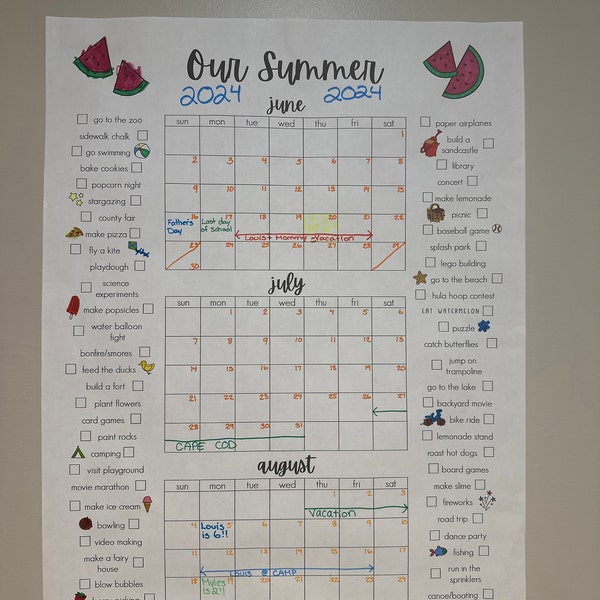 Our Summer
2024 2024
go to the zoo
sidewalk chalk
go swimming
bake cookies
popcorn night
stargazing
county fair
make pizza
fly a kite
playdough
science
experiments
make popsicles
water balloon
fight
bonfire/smores
feed the ducks
build a fort
plant flowers
card games
paint rocks
camping
visit playground
movie marathon
make ice cream
bowling
video making
make a fairy
house
blow bubbles
june
sun mon tue wed thu fri sat
1
2 3 4 5 6 7 8
9 10 11 12 13 14 15
16 17 18 19 20 21 22
Father's
Day
Last day
of School
Louis + Mommy Vacation
23 24 25 26 27 28 29
30
july
sun mon tue wed thu fri sat
1 2 3 4 5 6
7 8 9 10 11 12 13
14 15 16 17 18 19 20
21 22 23 24 25 26 27
28 29 30 31
CAPE COD
august
sun mon tue wed thu fri sat
1 2 3
Vacation
4 5 6 7 8 9 10
Louis
is 6!!
11 12 13 14 15 16 17
LOUIS @ CAMP
18 19 20 21 22 23 24
Myles
is 2!!
paper airplanes
build a
sandcastle
library
concert
make lemonade
picnic
baseball game
splash park
lego building
go to the beach
hula hoop contest
EAT WATERMELON
puzzle
catch butterflies
jump on
trampoline
go to the lake
backyard movie
bike ride
lemonade stand
roast hot dogs
board games
make slime
fireworks
road trip
dance party
fishing
run in the
sprinklers
canoe/boating